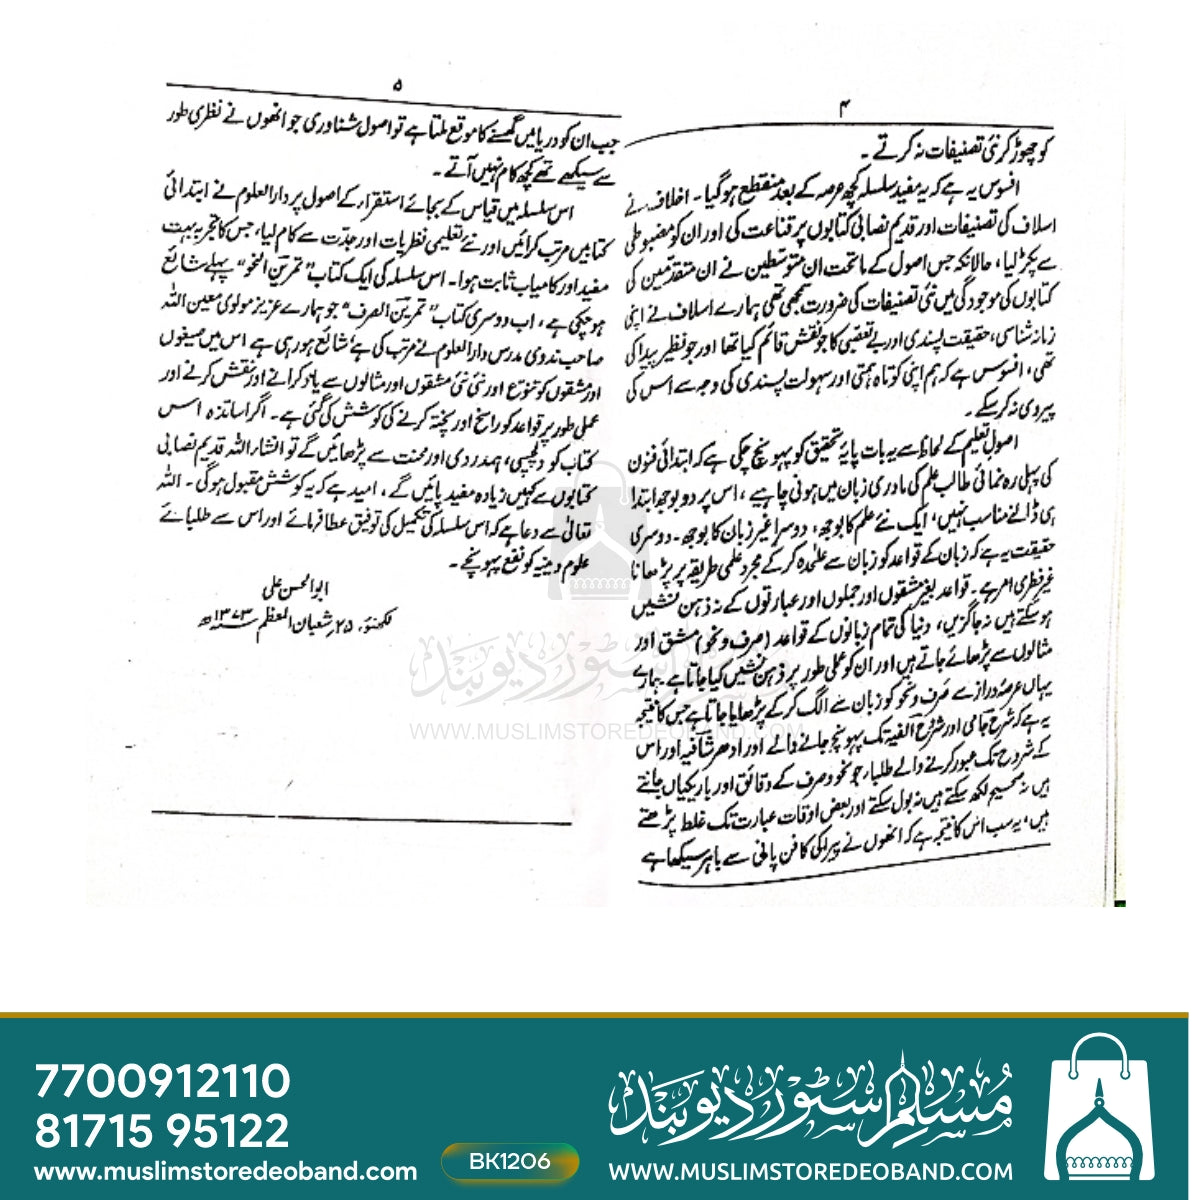 ۴
کو چھوڑ کر نئی تصنیفات نہ کرتے ۔
افسوس یہ ہے کہ یہ مفید سلسلہ کچھ عرصہ کے بعد منقطع ہوگیا ۔ اخلاف نے
اسلاف کی تصنیفات اور قدیم نصابی کتابوں پر قناعت کی اور ان کو مضبوطی
سے پکڑ لیا ، حالانکہ جس اصول کے ماتحت ان متوسطین نے ان متقدمین کی
کتابوں کی موجودگی میں نئی تصنیفات کی ضرورت سمجھی تھی ہمارے اسلاف نے اپنی
زمانہ شناسی ، حقیقت پسندی اور بے تعصبی کا جو نقش قائم کیا تھا اور جو نظیر پیدا کی
تھی ، افسوس ہے کہ ہم اپنی کوتاہ ہمتی اور سہولت پسندی کی وجہ سے اس کی
پیروی نہ کر سکے ۔
اصول تعلیم کے لحاظ سے یہ بات پایۂ تحقیق کو پہونچ چکی ہے کہ ابتدائی فنون
کی پہلی رہ نمائی طالب علم کی مادری زبان میں ہونی چاہیے ، اس پر دو بوجھ ابتدا
ہی ڈالنے مناسب نہیں ، ایک نئے علم کا بوجھ ، دوسرا غیر زبان کا بوجھ ۔ دوسری
حقیقت یہ ہے کہ زبان کے قواعد کو زبان سے علٰحدہ کر کے مجرد علمی طریقہ پر پڑھانا
غیر فطری امر ہے ۔ قواعد بغیر مشقوں اور جملوں اور عبارتوں کے نہ ذہن نشیں
ہو سکتے ہیں نہ جاگزیں ، دنیا کی تمام زبانوں کے قواعد (صرف و نحو) مشق اور
مثالوں سے پڑھائے جاتے ہیں اور ان کو عملی طور پر ذہن نشیں کیا جاتا ہے ہمارے
یہاں عرصۂ دراز سے صرف و نحو کو زبان سے الگ کر کے پڑھایا جاتا ہے جس کا نتیجہ
یہ ہے کہ شرح جامی اور شروح الفیہ تک پہونچ جانے والے اور ادھر شافیہ اور اس
کے شروح تک عبور کرنے والے طلبار جو نحو و صرف کے دقائق اور باریکیاں جانتے
ہیں نہ صحیح لکھ سکتے ہیں نہ بول سکتے اور بعض اوقات عبارت تک غلط پڑھتے
ہیں ، یہ سب اس کا نتیجہ ہے کہ انھوں نے پیراکی کا فن پانی سے باہر سیکھا ہے
۵
جب ان کو دریا میں گھسنے کا موقع ملتا ہے تو اصول شناوری جو انھوں نے نظری طور
سے سیکھے تھے کچھ کام نہیں آتے ۔
اس سلسلہ میں قیاس کے بجائے استقرار کے اصول پر دارالعلوم نے ابتدائی
کتابیں مرتب کرائیں اور نئے تعلیمی نظریات اور جدّت سے کام لیا ، جس کا تجربہ بہت
مفید اور کامیاب ثابت ہوا ۔ اس سلسلہ کی ایک کتاب "تمرین النحو" پہلے شائع
ہو چکی ہے ، اب دوسری کتاب "تمرین الصرف" جو ہمارے عزیز مولوی معین اللہ
صاحب ندوی مدرس دارالعلوم نے مرتب کی ہے شائع ہو رہی ہے اس میں صیغوں
اور مشقوں کو تنوّع اور نئی نئی مشقوں اور مثالوں سے یاد کرانے اور نقش کرنے اور
عملی طور پر قواعد کو راسخ اور پختہ کرنے کی کوشش کی گئی ہے ۔ اگر اساتذہ اس
کتاب کو دلچسپی ، ہمدردی اور محنت سے پڑھائیں گے تو انشار اللہ قدیم نصابی
کتابوں سے کہیں زیادہ مفید پائیں گے ، امید ہے کہ یہ کوشش مقبول ہوگی ۔ اللہ
تعالٰی سے دعا ہے کہ اس سلسلہ کی تکمیل کی توفیق عطا فرمائے اور اس سے طلبائے
علوم دینیہ کو نفع پہونچے ۔
ابوالحسن علی
لکھنؤ ۔ ۲۵ر شعبان المعظم ۱۳۷۳ھ
مسلم سٹور دیوبند
WWW.MUSLIMSTOREDEOBAND.COM
7700912110
81715 95122
www.muslimstoredeoband.com
BK1206
مسلم سٹور دیوبند
WWW.MUSLIMSTOREDEOBAND.COM